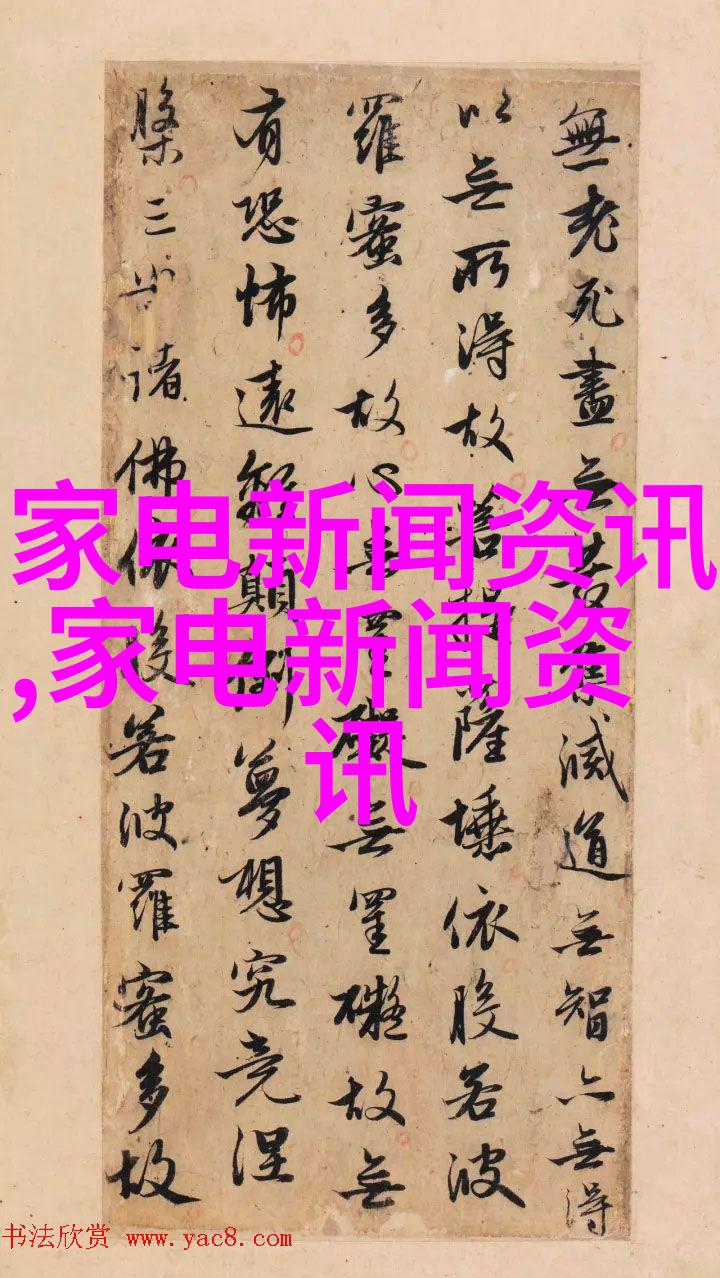 無老死盡無苦集滅道無智亦無得
以無所得故菩提薩埵依般若波
羅蜜多故心無罣礙無罣礙故無
有恐怖遠離顛倒夢想究竟涅
槃三世諸佛依般若波羅蜜多故
家电新闻资讯
,家电新闻资
讯
书法欣赏 www.yac8.com